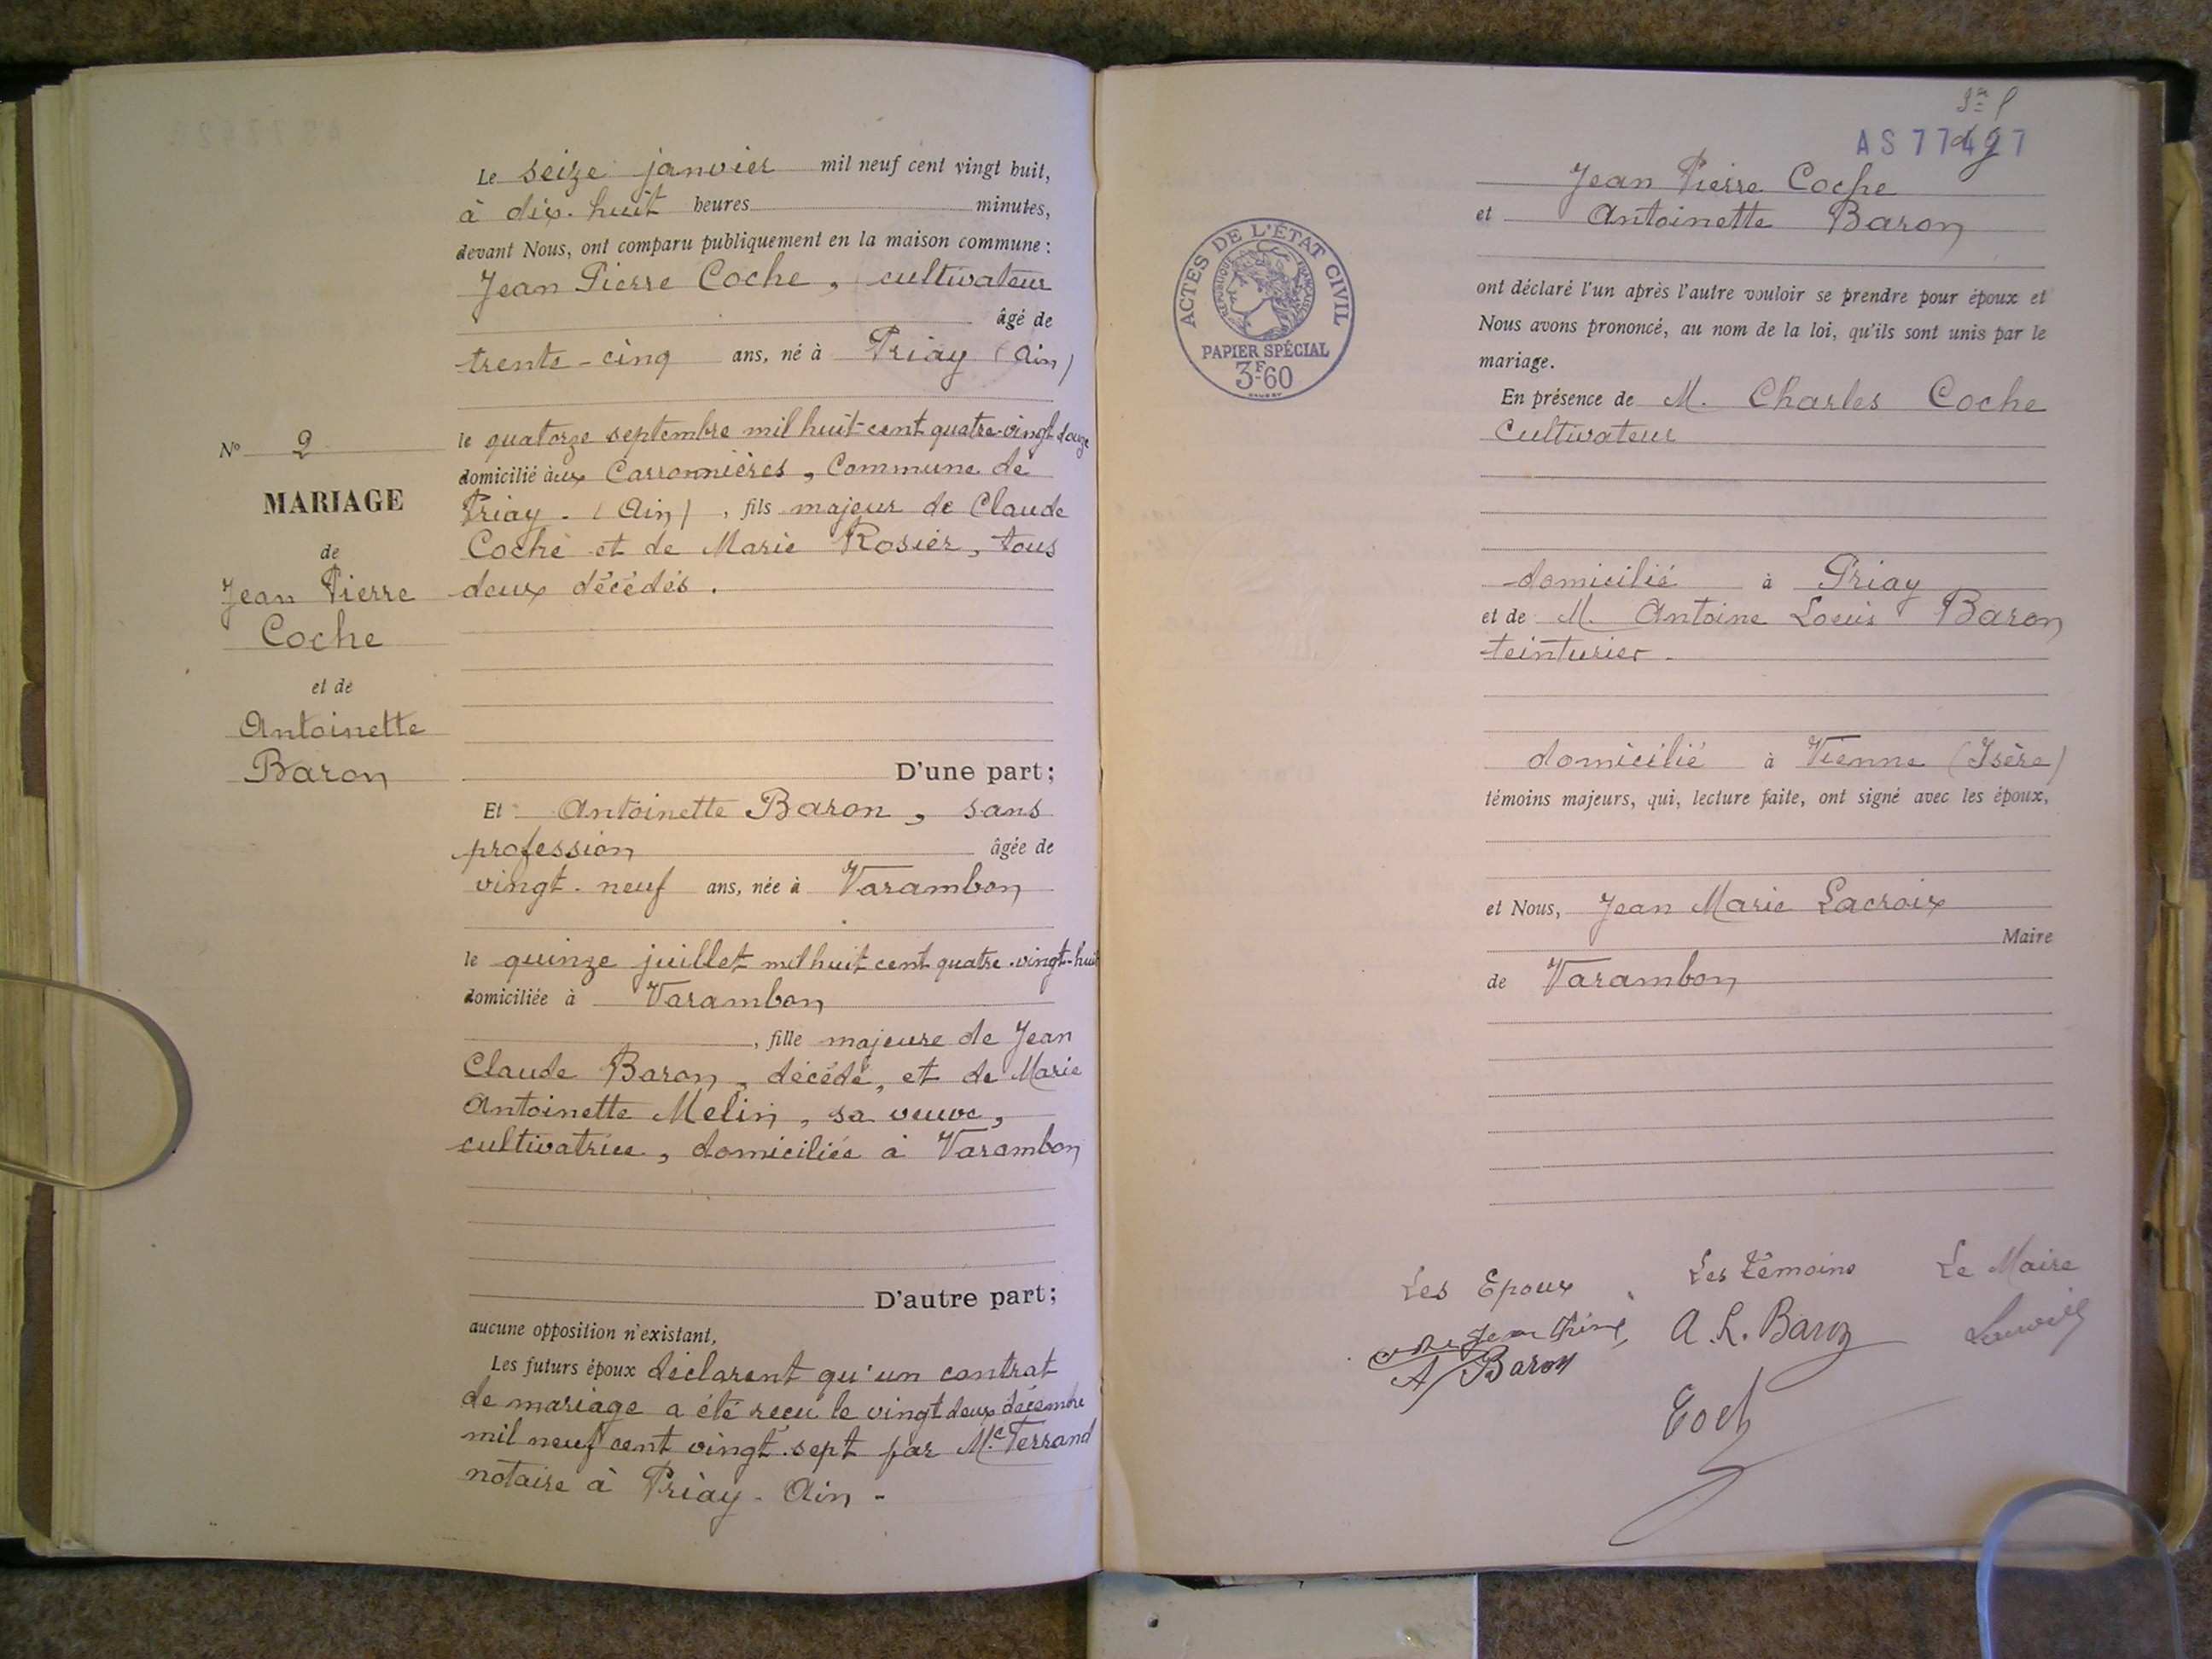 Le seize janvier mil neuf cent vingt huit,
à dix-huit heures minutes,
devant Nous, ont comparu publiquement en la maison commune :
Jean Pierre Coche, cultivateur
âgé de
trente-cinq ans, né à Priay (Ain)
le quatorze septembre mil huit-cent quatre-vingt douze
domicilié aux Carronnières, Commune de
Priay. (Ain), fils majeur de Claude
Coche et de Marie Rosier, tous
deux décédés.
D'une part ;
Et Antoinette Baron, sans
profession âgée de
vingt-neuf ans, née à Varambon
le quinze juillet mil huit cent quatre-vingt-huit
domiciliée à Varambon
, fille majeure de Jean
Claude Baron, décédé, et de Marie
Antoinette Melin, sa veuve,
cultivatrice, domiciliée à Varambon
D'autre part ;
aucune opposition n'existant.
Les futurs époux déclarent qu'un contrat
de mariage a été reçu le vingt deux décembre
mil neuf cent vingt-sept par Me Ferrand
notaire à Priay - Ain -
N° 2
MARIAGE
de
Jean Pierre
Coche
et de
Antoinette
Baron
Jean Pierre Coche
et Antoinette Baron
ont déclaré l'un après l'autre vouloir se prendre pour époux et
Nous avons prononcé, au nom de la loi, qu'ils sont unis par le
mariage.
En présence de M. Charles Coche
Cultivateur
domicilié à Priay
et de M. Antoine Louis Baron
teinturier.
domicilié à Vienne (Isère)
témoins majeurs, qui, lecture faite, ont signé avec les époux,
et Nous, Jean Marie Lacroix
Maire
de Varambon
Les Epoux
Les témoins
Le Maire
A. L. Baron
A Baron
ACTES DE L'ÉTAT CIVIL
RÉPUBLIQUE FRANÇAISE
PAPIER SPÉCIAL
3F60